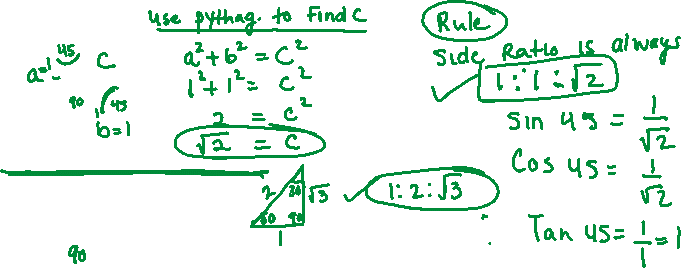 use pythag. to Find C
a=1 45 C
90 45
b=1
a² + b² = C²
1² + 1² = C²
2 = C²
√2 = C
Rule
Side Ratio is always
1 : 1 : √2
Sin 45 = 1/√2
Cos 45 = 1/√2
Tan 45 = 1/1 = 1
2 30 √3
60 90
1
1 : 2 : √3
90